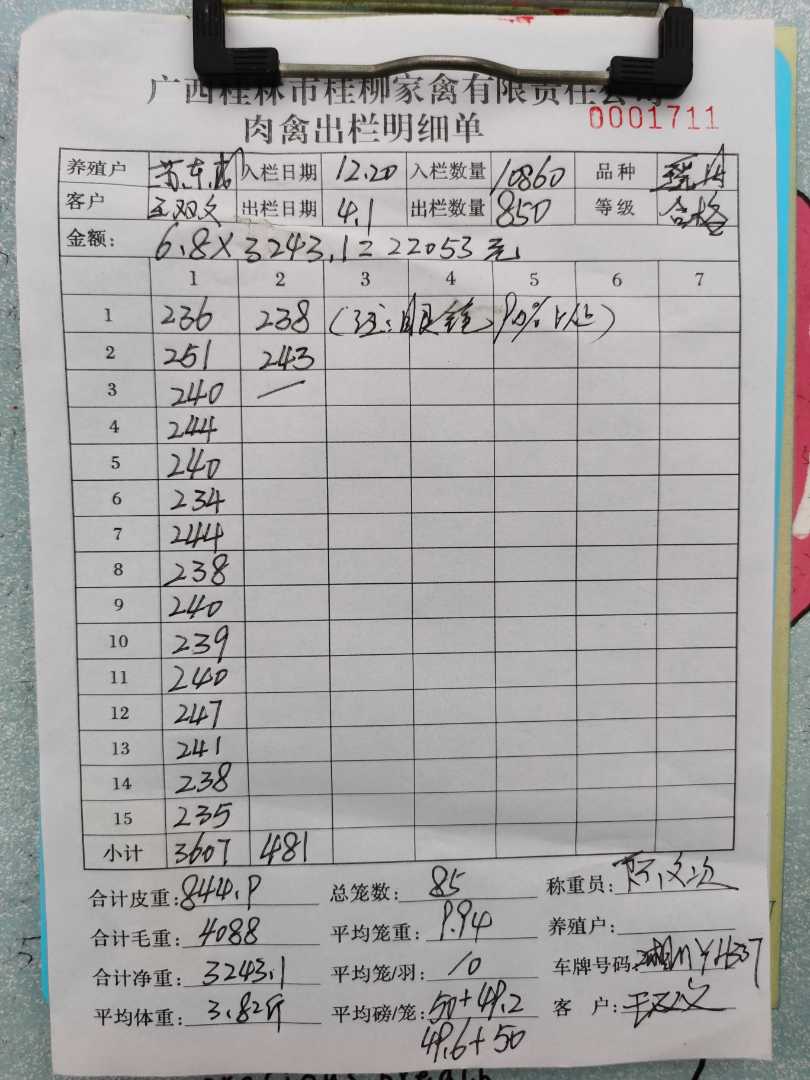 广西桂林市桂柳家禽有限责任公司
肉禽出栏明细单 0001711
养殖户 入栏日期 12.20 入栏数量 10860 品种
客户 王双文 出栏日期 4.1 出栏数量 850 等级 合格
金额: 6.8×3243.1=22053元
1 2 3 4 5 6 7
1 236 238 (注: 90%
2 251 243
3 240 —
4 244
5 240
6 234
7 244
8 238
9 240
10 239
11 240
12 247
13 241
14 238
15 235
小计 3607 481
合计皮重: 844.9 总笼数: 85 称重员:
合计毛重: 4088 平均笼重: 9.94 养殖户:
合计净重: 3243.1 平均笼/羽: 10 车牌号码:
平均体重: 3.82斤 平均磅/笼: 50+49.2 客 户: 王双文
49.6+50